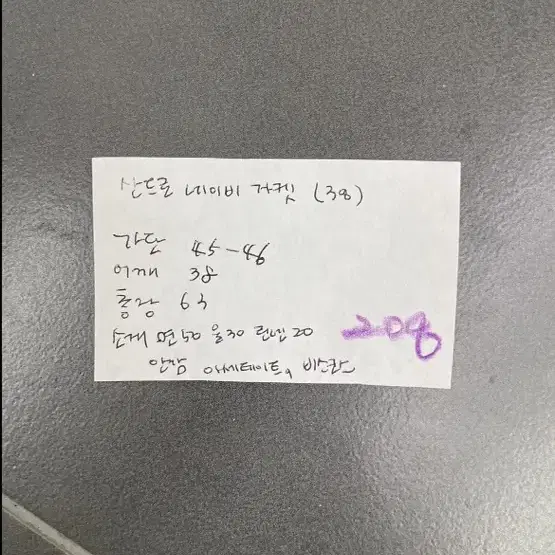 산드로 네이비 자켓 (38)
가단 45-46
어깨 38
총장 63
소재 면50 울30 린넨20
208
안감 아세테이트, 비스코스